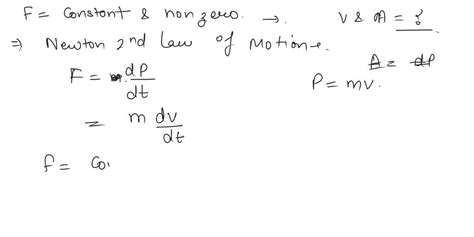 F = Constant & non zero. → V & A = ?
⇒ Newton 2nd Law of Motion
F = dP/dt
= m dv/dt
A = dP
P = mv.
f = Co